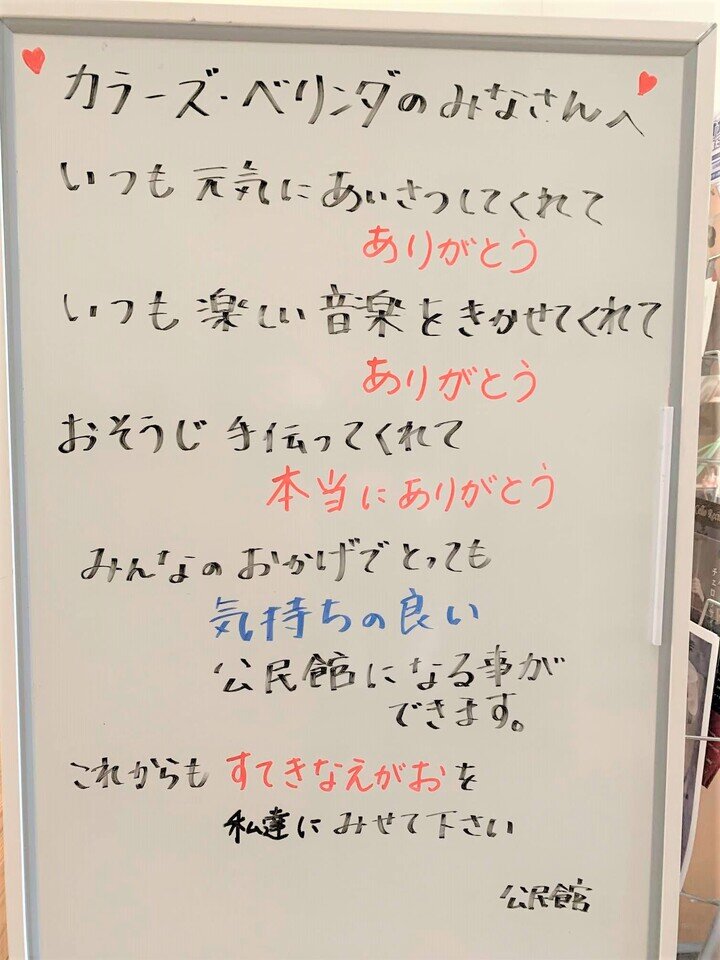 カラーズ・ベリンダのみなさんへ
いつも元気にあいさつしてくれて
ありがとう
いつも楽しい音楽をきかせてくれて
ありがとう
おそうじ手伝ってくれて
本当にありがとう
みんなのおかげでとっても
気持ちの良い
公民館になる事が
できます。
これからもすてきなえがおを
私達にみせて下さい
公民館